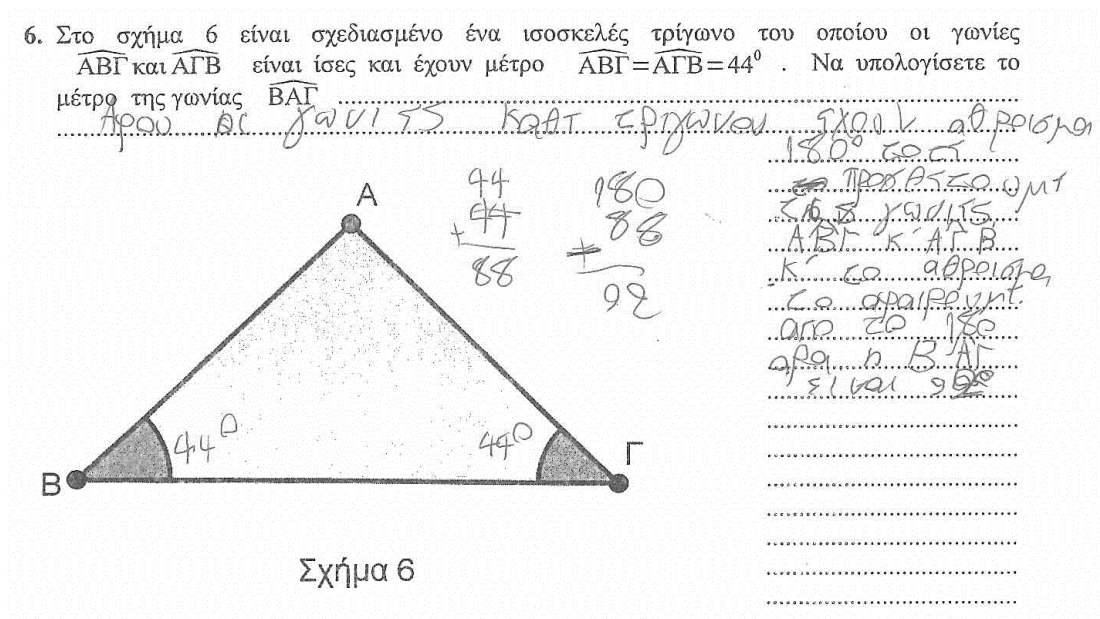 6. Στο σχήμα 6 είναι σχεδιασμένο ένα ισοσκελές τρίγωνο του οποίου οι γωνίες
ΑΒΓ και ΑΓΒ είναι ίσες και έχουν μέτρο ΑΒΓ=ΑΓΒ=44⁰ . Να υπολογίσετε το
μέτρο της γωνίας ΒΑΓ
Αφου οι γωνιες καθε τριγωνου εχουν αθροισμα
180° τοτε
προσθετουμε
τις γωνιες
ΑΒΓ κ' ΑΓΒ
κ' το αθροισμα
το αφαιρουμε
απο το 180
αρα η ΒΑΓ
ειναι 92°
44
44
+
88
180
88
92
Α
44°
44°
Β
Γ
Σχήμα 6